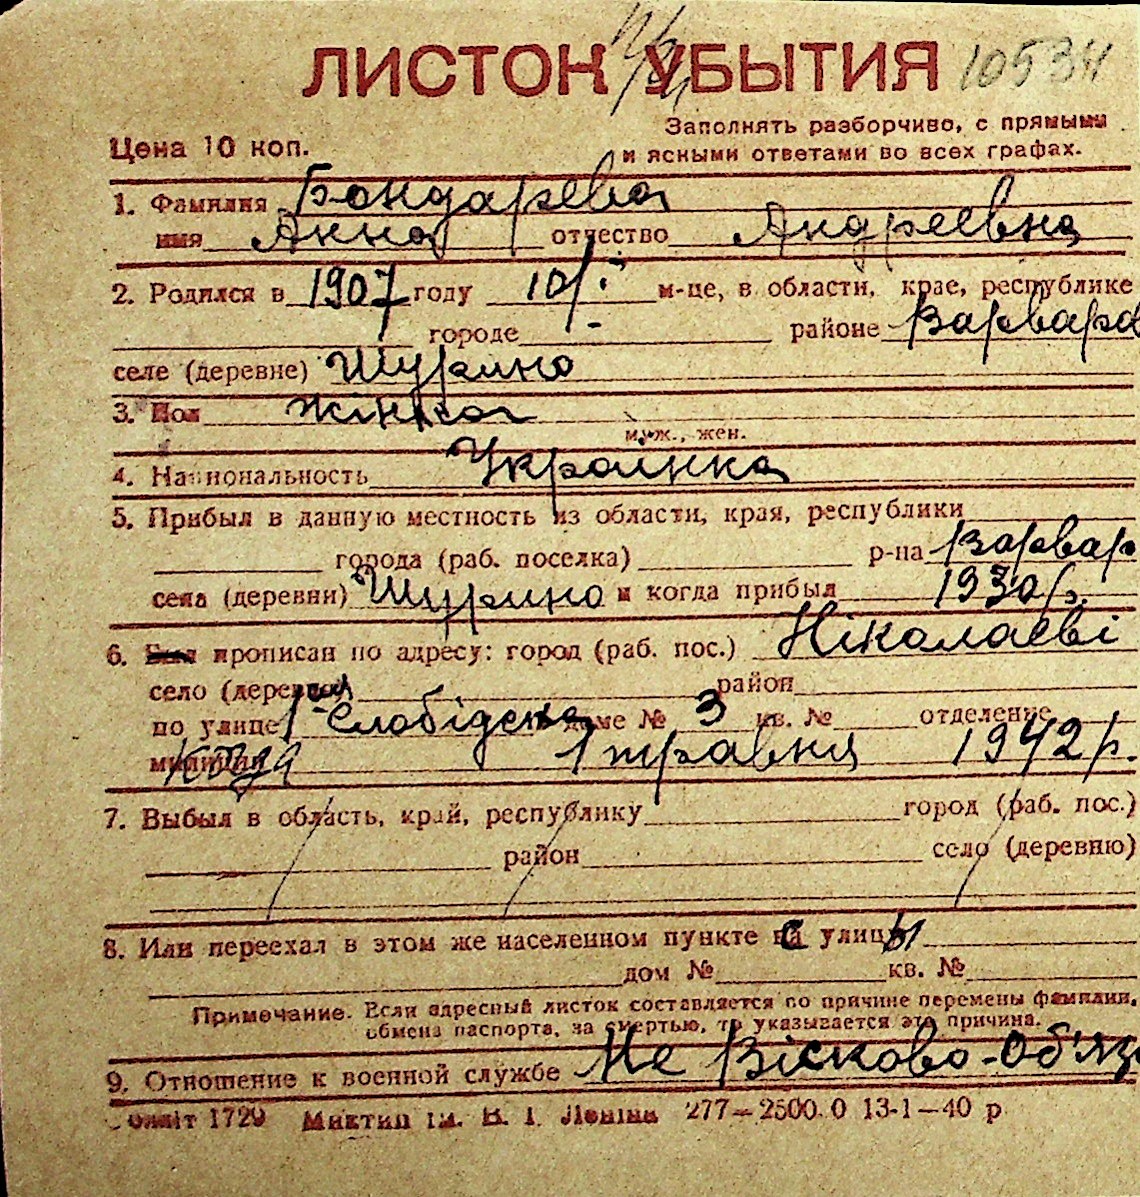 ЛИСТОК УБЫТИЯ 10534
Заполнять разборчиво, с прямыми
Цена 10 коп. и ясными ответами во всех графах.
1. Фамилия Бондарева
имя Анна отчество Андреевна
2. Родился в 1907 году 10/ м-це, в области, крае, республике
городе районе Варваров
селе (деревне) Шурино
3. Пол жінка
муж., жен.
4. Национальность Украинка
5. Прибыл в данную местность из области, края, республики
города (раб. поселка) р-на Варвар
села (деревни) Шурино и когда прибыл 1930 р.
6. Был прописан по адресу: город (раб. пос.) Ніколаеві
село (деревня) район
по улице 1ая Слобідска доме № 3 кв. № отделение
милиции когда 1 травня 1942 р.
7. Выбыл в область, край, республику город (раб. пос.)
район село (деревню)
8. Или переехал в этом же населенном пункте с улицы
дом № кв. №
Примечание. Если адресный листок составляется по причине перемены фамилии,
обмена паспорта, за смертью, то указывается эта причина.
9. Отношение к военной службе Не Вісково-Об'яз
1729 ім. В. І. Леніна 277—2500.0 13-1—40 р